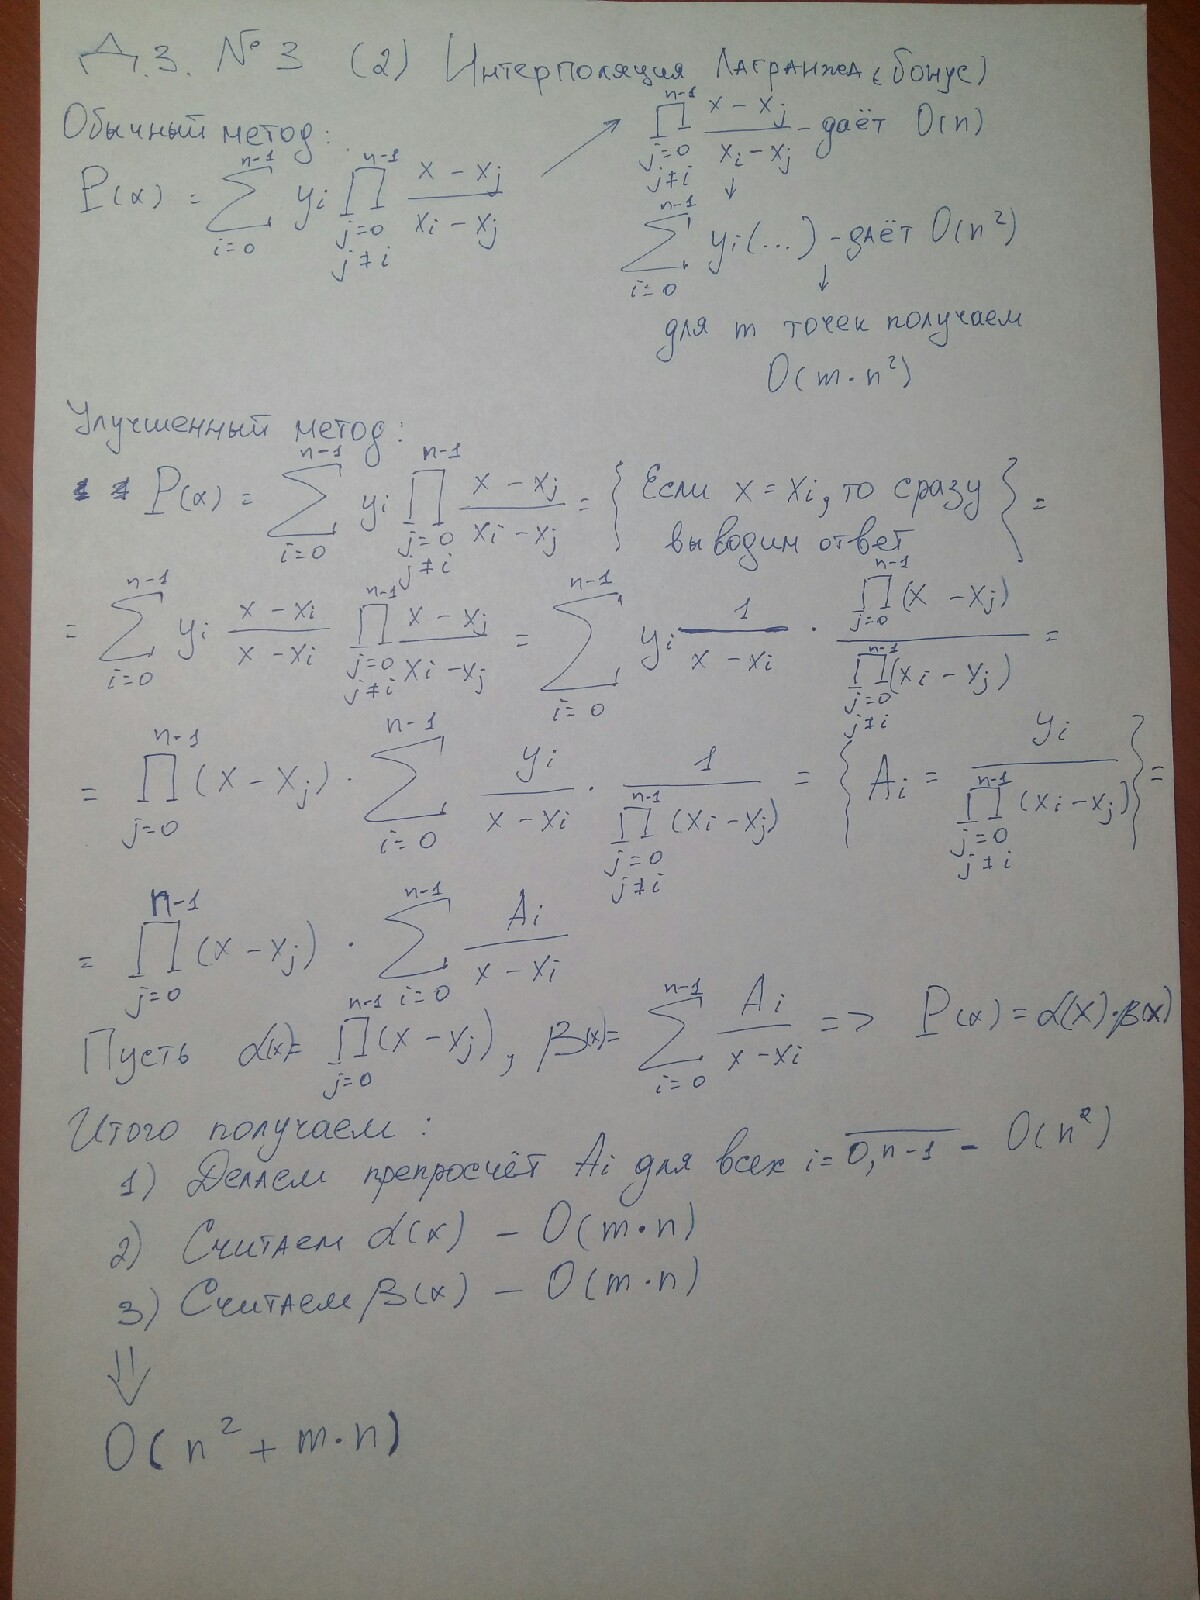 Д.З. №3 (2) Интерполяция Лагранжа (бонус)
Обычный метод:
P(x) = \sum_{i=0}^{n-1} y_i \prod_{j=0, j≠i}^{n-1} \frac{x - x_j}{x_i - x_j}
\prod_{j=0, j≠i}^{n-1} \frac{x - x_j}{x_i - x_j} - даёт O(n)
↓
\sum_{i=0}^{n-1} y_i(...) - даёт O(n²)
↓
для m точек получаем
O(m·n²)
Улучшенный метод:
P(x) = \sum_{i=0}^{n-1} y_i \prod_{j=0, j≠i}^{n-1} \frac{x - x_j}{x_i - x_j} = { Если x = x_i, то сразу
выводим ответ } =
= \sum_{i=0}^{n-1} y_i \frac{x - x_i}{x - x_i} \prod_{j=0, j≠i}^{n-1} \frac{x - x_j}{x_i - x_j} = \sum_{i=0}^{n-1} y_i \frac{1}{x - x_i} · \frac{\prod_{j=0}^{n-1} (x - x_j)}{\prod_{j=0, j≠i}^{n-1} (x_i - x_j)} =
= \prod_{j=0}^{n-1} (x - x_j) · \sum_{i=0}^{n-1} \frac{y_i}{x - x_i} · \frac{1}{\prod_{j=0, j≠i}^{n-1} (x_i - x_j)} = { A_i = \frac{y_i}{\prod_{j=0, j≠i}^{n-1} (x_i - x_j)} } =
= \prod_{j=0}^{n-1} (x - x_j) · \sum_{i=0}^{n-1} \frac{A_i}{x - x_i}
Пусть α(x) = \prod_{j=0}^{n-1} (x - x_j), β(x) = \sum_{i=0}^{n-1} \frac{A_i}{x - x_i} => P(x) = α(x)·β(x)
Итого получаем:
1) Делаем препросчёт A_i для всех i = \overline{0, n-1} - O(n²)
2) Считаем α(x) - O(m·n)
3) Считаем β(x) - O(m·n)
⇓
O(n² + m·n)